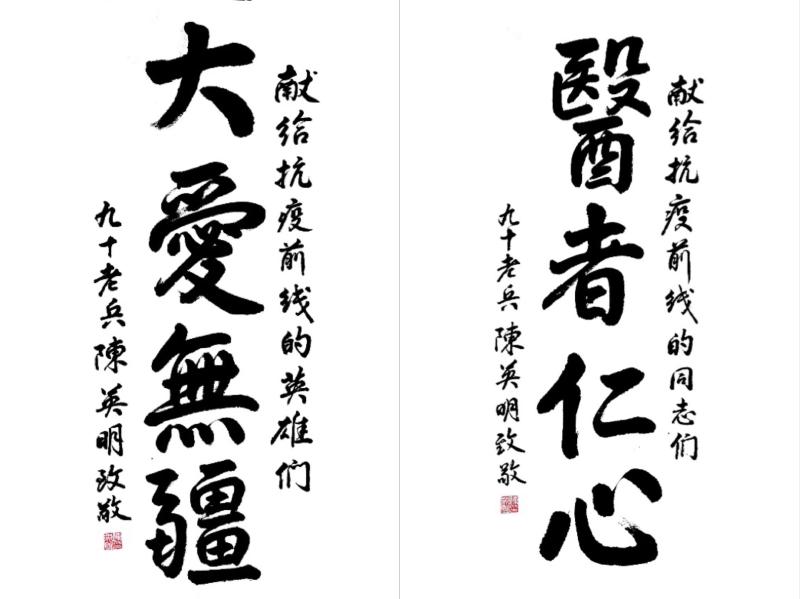 献给抗疫前线的英雄们
大愛無疆
九十老兵陳英明致敬
献给抗疫前线的同志们
醫者仁心
九十老兵陳英明致敬